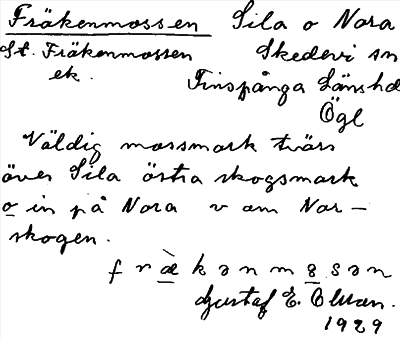 Fräkenmossen Sila o Nora
St. Fräkenmossen Skedevi sn
ek. Finspånga Länshd
Ögl
Väldig mossmark tvärs
över Sila östra skogsmark
o in på Nora v om Nor-
skogen.
fræ̀kənmɔsən
Gustaf E. Olsson.
1929